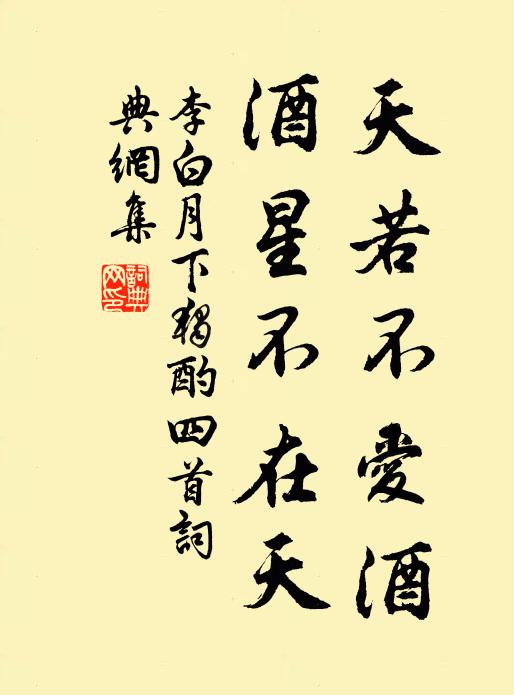 天若不愛酒
酒星不在天
李白月下獨酌四首詞
典網集
詞典
网印